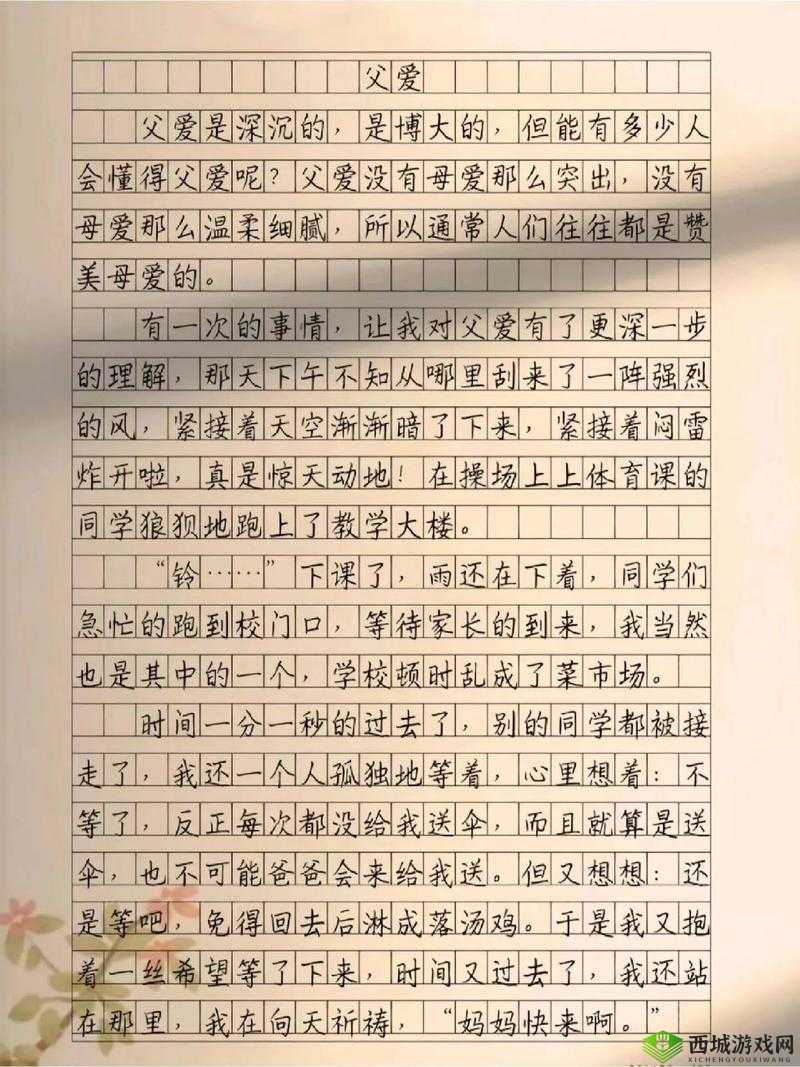 父爱
父爱是深沉的，是博大的，但能有多少人
会懂得父爱呢？父爱没有母爱那么突出，没有
母爱那么温柔细腻，所以通常人们往往都是赞
美母爱的。
有一次的事情，让我对父爱有了更深一步
的理解，那天下午不知从哪里刮来了一阵强烈
的风，紧接着天空渐渐暗了下来，紧接着闷雷
炸开啦，真是惊天动地！在操场上上体育课的
同学狼狈地跑上了教学大楼。
“铃……”下课了，雨还在下着，同学们
急忙的跑到校门口，等待家长的到来，我当然
也是其中的一个，学校顿时乱成了菜市场。
时间一分一秒的过去了，别的同学都被接
走了，我还一个人孤独地等着，心里想着：不
等了，反正每次都没给我送伞，而且就算是送
伞，也不可能爸爸会来给我送。但又想想：还
是等吧，免得回去后淋成落汤鸡。于是我又抱
着一丝希望等了下来，时间又过去了，我还站
在那里，我在向天祈祷，“妈妈快来啊。”
西城游戏网
XICHENGYOUXIWANG